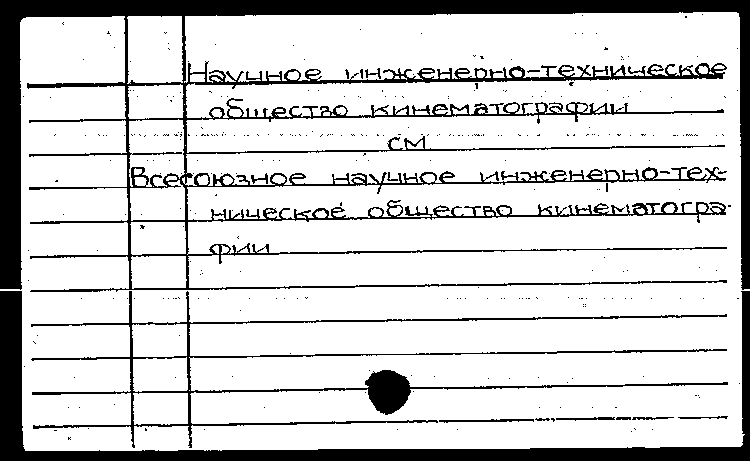 Научное инженерно-техническое
общество кинематографии
см
Всесоюзное научное инженерно-тех-
ническое общество кинематогра-
фии